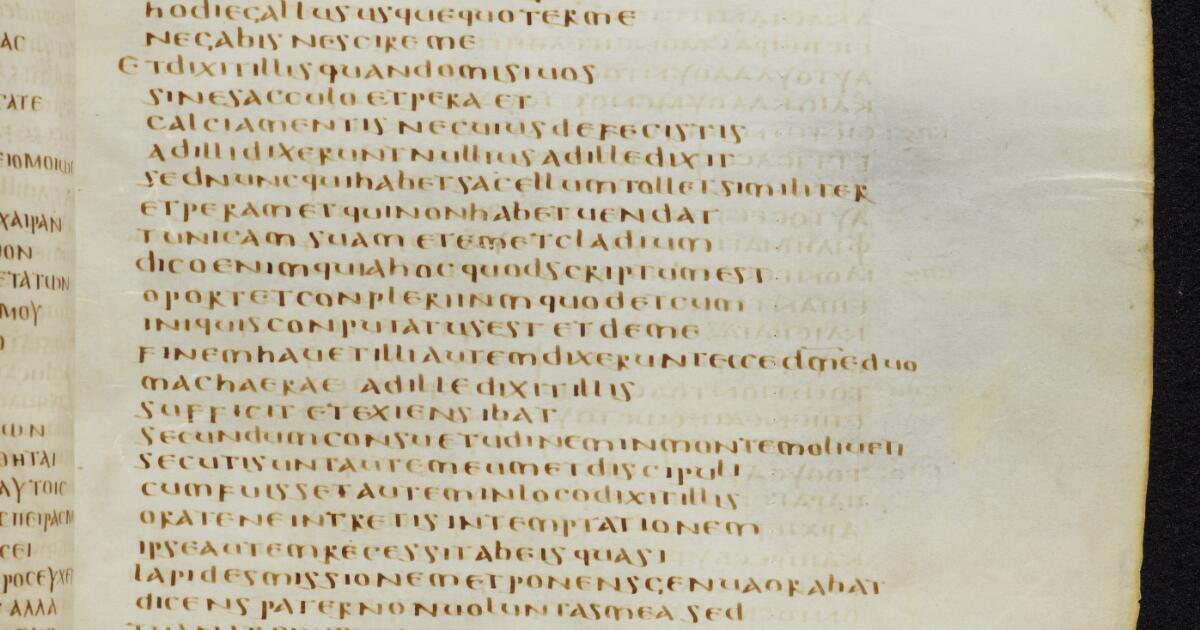 hodie gallus usque quo ter me
negabis nescire me
Et dixit illis quando misi uos
sine sacculo et pera et
calciamentis nec uius defecistis
ad illi dixerunt nullius ad ille dixit
sed nunc qui habet sacellum tollet similiter
et peram et qui non habet uendat
tunicam suam et emet cladium
dico enim quia hoc quod scriptum est
oportet conpleri in m quod et cum
iniquis conputatus est et de me
finem havet illi autem dixerunt ecce dme duo
machaerae ad ille dixit illis
sufficit et exiens ibat
secundum consuetudinem in montem oliueti
secuti sunt autem eum et discipuli
cum fuisset autem in loco dixit illis
orate ne intretis in temptationem
ipse autem recessit ab eis quasi
lapides missionem et ponens genua orabat
dicens pater no n uoluntas mea sed
ΑС
ΓΑΤΕ
ΧΑΙΡΑΝ
ΟΝ
ΕΤΑΤѠΝ
ΜΟΥ
ѠΝ
ΘΗΤΑΙ
ΑΥΤΟΙС
СΕΙ
ΡΟСΕΥΧΕ
ΑΛΛΑ